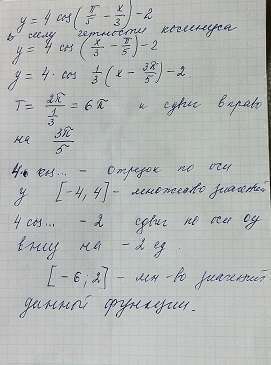 y = 4 cos (π/5 - x/3) - 2
в силу четности косинуса
y = 4 cos (x/3 - π/5) - 2
y = 4 · cos 1/3 (x - 3π/5) - 2
T = 2π / 1/3 = 6π и сдвиг вправо
на 3π/5
4 cos ... - отрезок по оси
y [-4, 4] - множество значен
4 cos ... - 2 сдвиг по оси Oy
вниз на - 2 ед.
[-6, 2] - мн-во значений
данной функции.